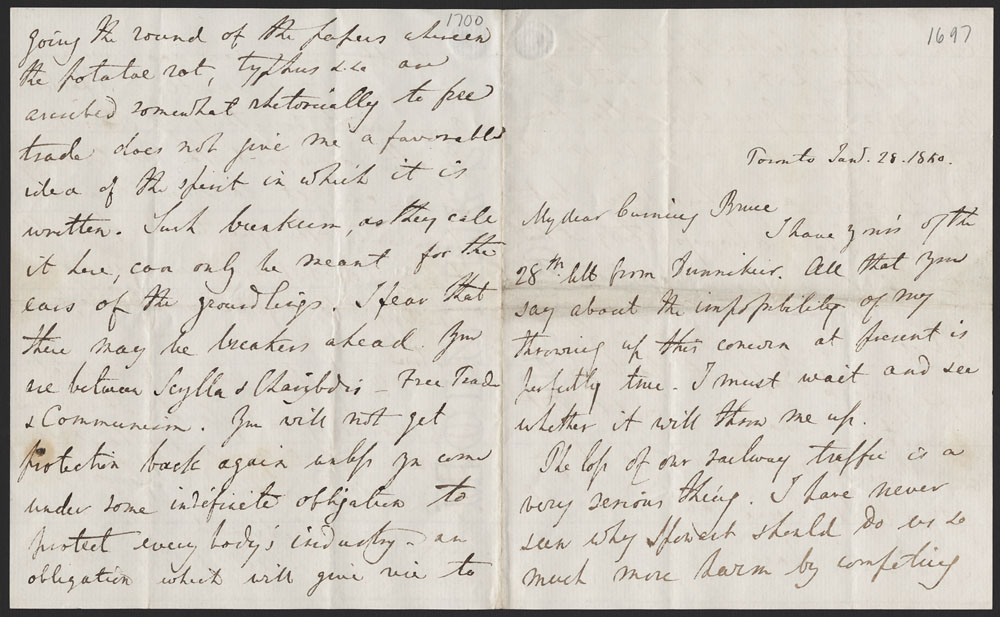 1700
going the round of the papers wherein
the potatoe rot, typhus &.&c are
ascribed somewhat rhetorically to free
trade does not give me a favorable
idea of the spirit in which it is
written. Such bunkum, as they call
it here, can only be meant for the
ears of the groundlings. I fear that
there may be breakers ahead. You
are between Scylla & Charibdis – Free Trade
& Communism. You will not get
protection back again unless you come
under some indefinite obligation to
protect every body's industry – an
obligation which will give rise to
1697
Toronto Jany. 28. 1850.
My dear Cuming Bruce
I have yours of the
28th ult from Dunnikier. All that you
say about the impossibility of my
throwing up this concern at present is
perfectly true. I must wait and see
whether it will throw me up.
The loss of our railway traffic is a
very serious thing. I have never
seen why should do us so
much more harm by competing